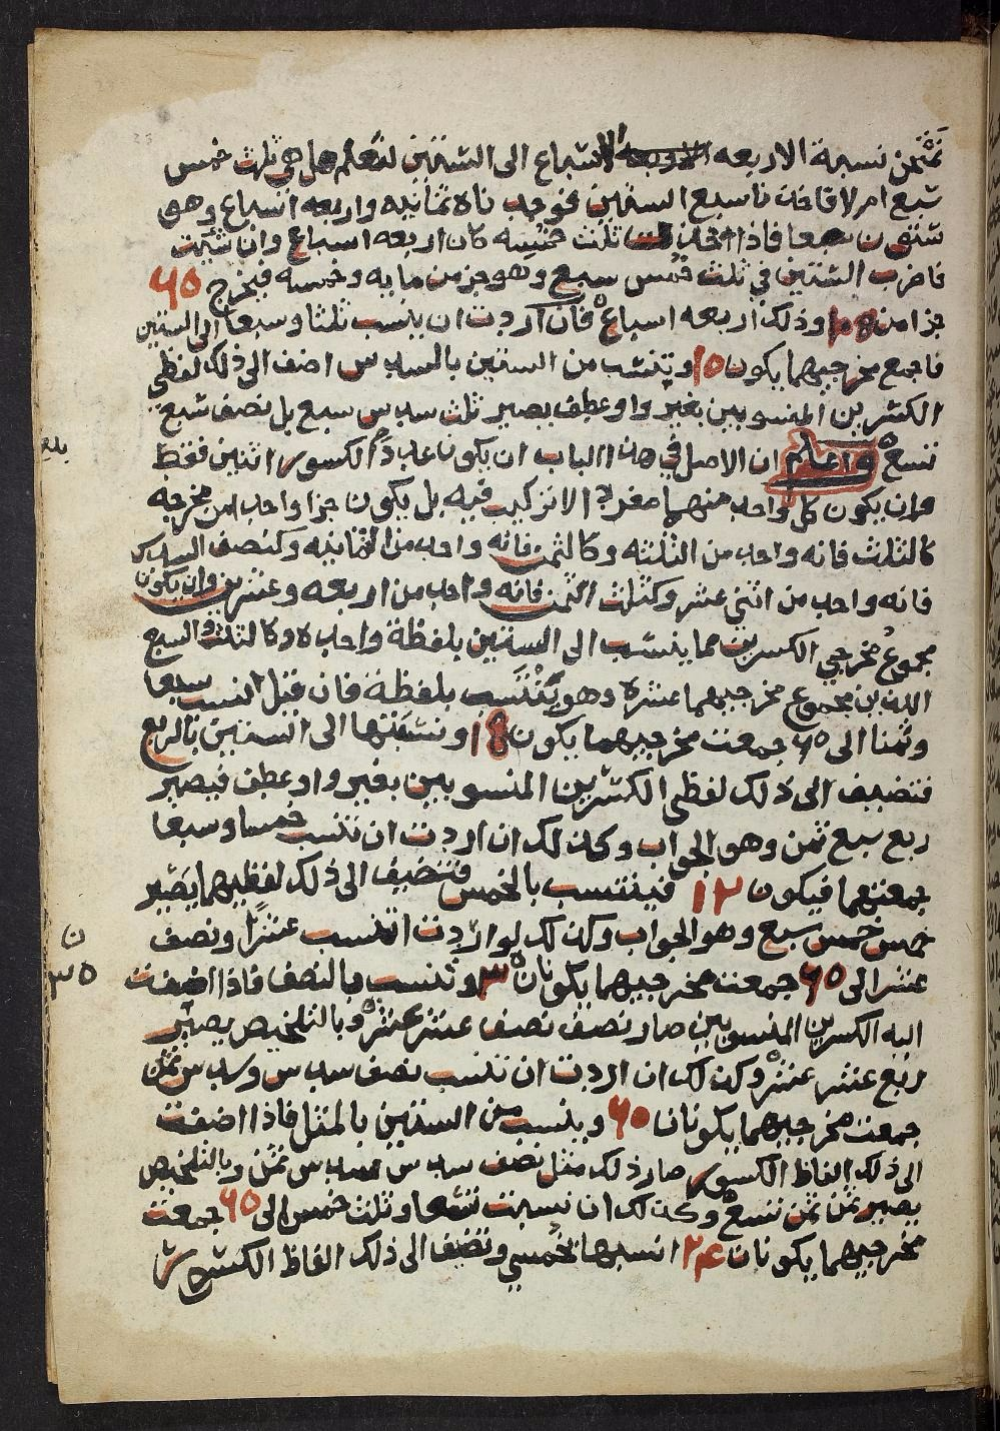 ثمن نسبة الاربعه الاسباع الى الستين لتعلم هل هي ثلث خمس
سبع ام لا فاخذنا سبع الستين فوجدناه ثمانيه واربعه اسباع وهو
ستون سبعا فاذا اخذت ثلث خمسه كان اربعه اسباع وان شئت
فاضرب الستين في ثلث خمس سبع وهو جز من مايه وخمسه فيخرج ٦٠
جزا من ١٠٥ وذلك اربعه اسباع فان اردت ان ينسب ثلثا وسبعا الى الستين
فاجمع مخرجيهما يكون ١٠ وتنسب من الستين بالسدس اضف الى ذلك لفظي
الكسرين المنسوبين بغير واو عطف يصير ثلث سدس سبع بل نصف سبع
تسع واعلم ان الاصل في هذا الباب ان يكون عدد الكسور اثنين فقط
وان يكون كل واحد منهما مفردا لا تركيب فيه بل يكون جزا واحدا من مخرجه
كالثلث فانه واحد من الثلثه وكالثمن فانه واحد من الثمانيه وكنصف السدس
فانه واحد من اثني عشر وكثلث الثمن فانه واحد من اربعه وعشرين وان يكون
مجموع مخرجي الكسرين مما ينسب الى الستين بلفظة واحده وكالثلث والسبع
الذين مجموع مخرجيهما عشره وهو ينسب بلفظة فان قيل انسب سبعا
وثمنا الى ٦٠ جمعت مخرجيهما يكون ١٥ ونسبتها الى الستين بالربع
فتضيف الى ذلك لفظي الكسرين المنسوبين بغير واو عطف فيصير
ربع سبع ثمن وهو الجواب وكذلك ان اردت ان تنسب خمسا وسبعا
جمعتهما فيكون ١٢ فينتسب بالخمس فتضيف الى ذلك لفظيهما يصير
خمس خمس سبع وهو الجواب وكذلك لو اردت ا تنسب عشرا ونصف
عشر الى ٦٠ جمعت مخرجيهما يكونان ٣٠ وتنسب بالنصف فاذا اضفت
اليه الكسرين المنسوبين صار نصف نصف عشر عشر وبالتلخيص يصير
ربع عشر عشر وكذلك ان اردت ان تنسب نصف سدس وسدس ثمن
جمعت مخرجيهما يكونان ٦٠ وينسب من الستين بالمثل فاذا اضفت
الى ذلك الفاظ الكسور صار ذلك مثل نصف سدس سدس ثمن وبالتلخيص
يصير ثمن ثمن تسع وكذلك ان نسبت تسعا وثلث خمس الى ٦٠ جمعت
مخرجيهما يكونان ٢٤ انسبها بخمسي وتضيف الى ذلك الفاظ الكسور
ن
٣٥